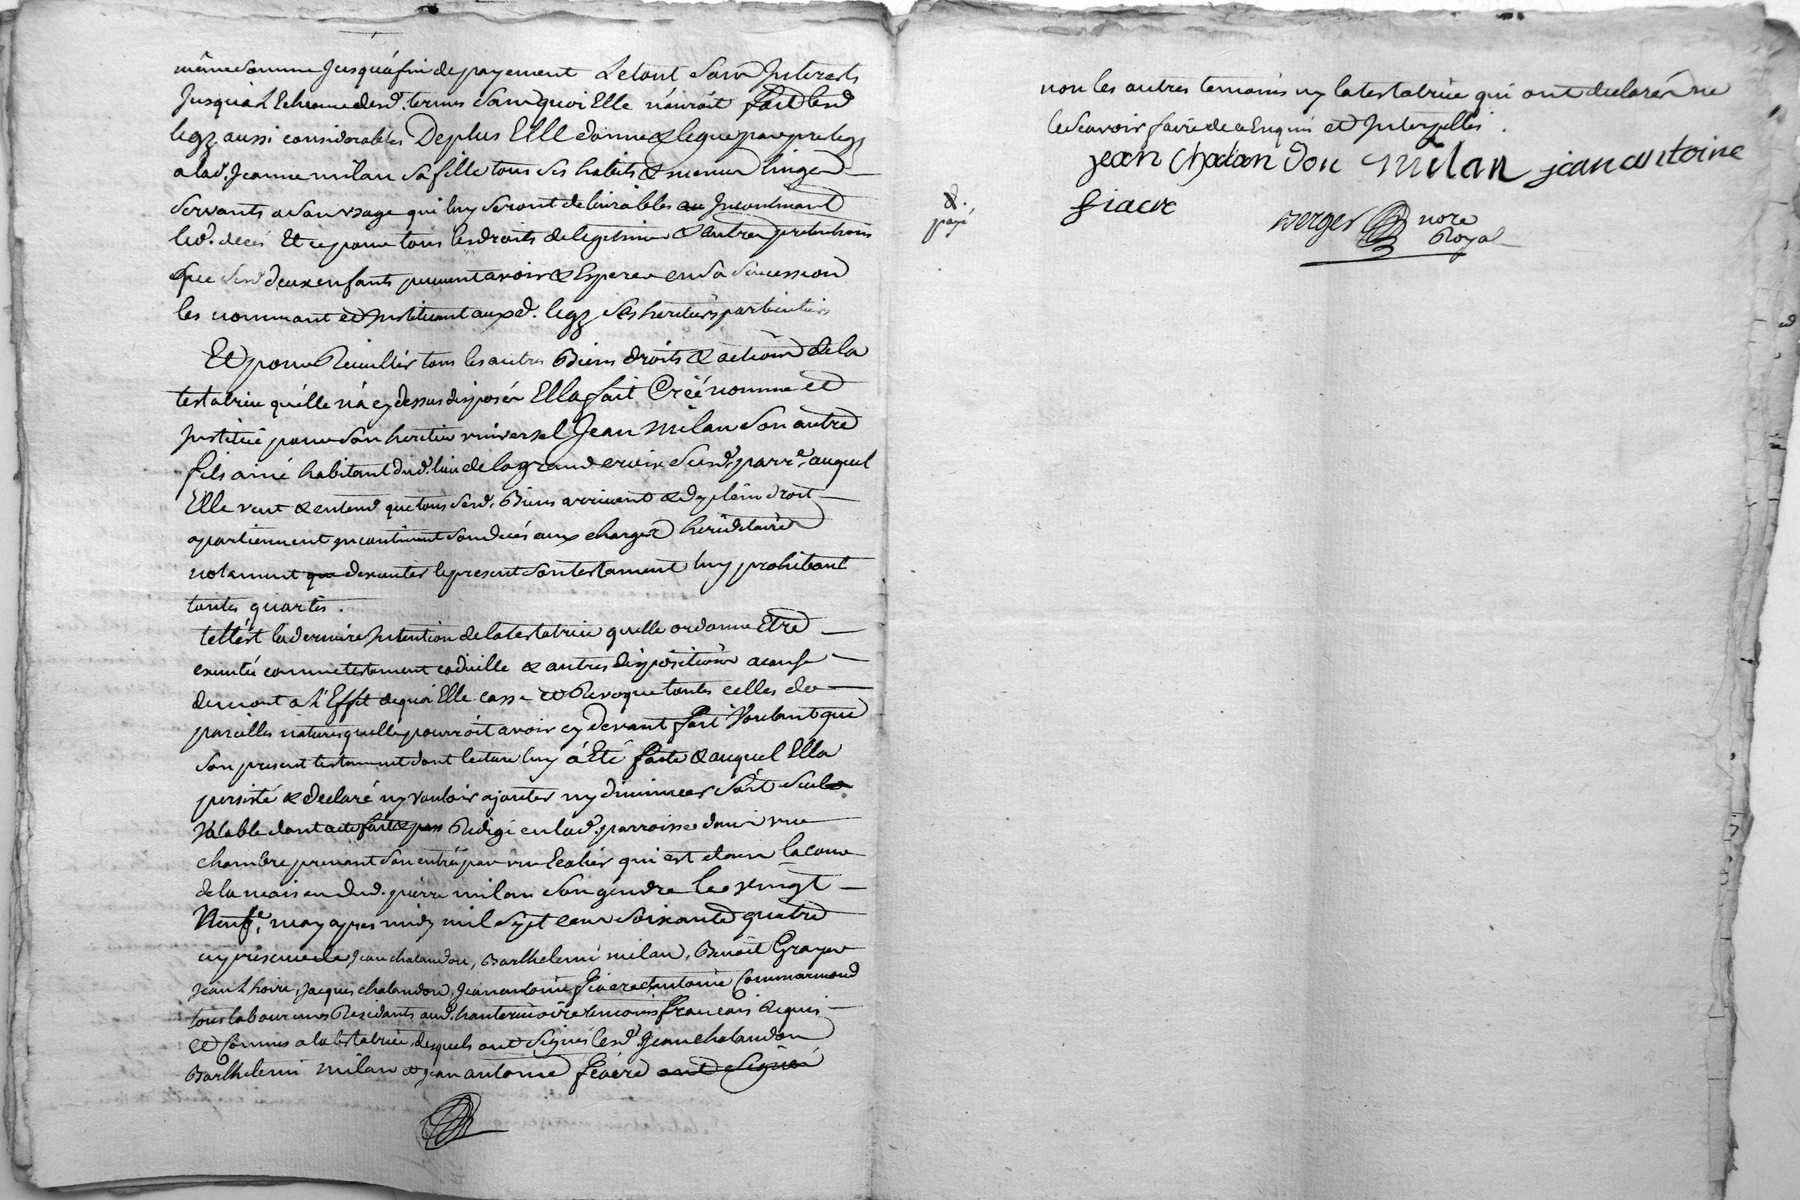 même somme Jusqu'á fin de payement Le tout sans Interests
Jusqu'a L'Echeance desd. termes sans quoi Elle n'auroit fait lesd
legz aussi considerables De plus Elle donne & legue par prelegz
a lad. Jeanne milan sa fille tous ses habits & menu linge
servants a son usage qui luy seront delivrables Incontinant
led. decés Et ce pour tous les droits de legitime & autres pretentions
que sesd. deux enfants peuvent avoir & Esperer en sa succession
les nommant et Instituant auxd. legz ses heritiers particuliers
Et pour Recuillir tous les autres Biens droits & actions de la
testatrice qu'elle n'á cy dessus disposés Ella fait Créé nomme et
Institué pour son heritier universel Jean Milan son autre
fils ainé habitant dud. lieu de la grand croix susd. parr.e auquel
Elle veut & entend que tous sesd. Biens arrivent & de plein droit
apartiennent Incontinant son decés aux charges heriditaires
notament d'executer le present son testament luy prohibant
toutes quartes.
telle est la derniere Intention de la testatrice qu'elle ordonne Etre
executée comme testament codicille & autres dispositions a cause
de mort a L'Effet de quoi Elle casse et Revoque toutes celles de
pareilles natures qu'elle pourroit avoir cy devant fait Voulant que
son present testament dont lecture luy á Eté faite & auquel Ella
persisté & declaré n'y vouloir ajouter ny diminuer soit seul
Valable dont acte fait & Redigé en lad. parroisse dans une
chambre prenant son entrée par un Ecalier qui est dans la cour
de la maison dud. pierre milan son gendre le vingt
Neuf.e may apres midy mil sept cent soixante quatre
en presence de Jean chalandon, Barthelemi milan, Benoit
Jean L'hoire, Jacques chalandon, Jean antoine fiacre & antoine Commarmond
tous laboureurs Residants aud. temoins francais Requis
et Connus a la testatrice, desquels ont signés lesd. Jean chalandon
Barthelemi milan et Jean antoine fiacre ont signés
&.
payé
non les autres temoins ny la testatrice qui ont declarés ne
le scavoir faire de ce Enquis et Interpellés.
jean chalan don milan jean antoine
fiacre
Berger nore
Royal